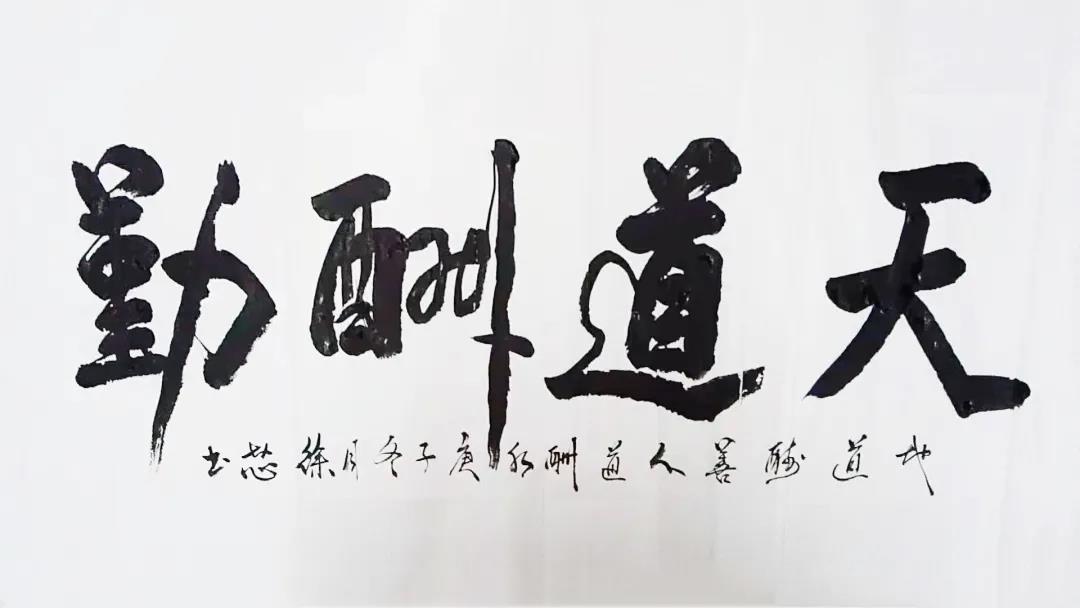 天道酬勤
地道酬善人道酬和庚子冬月徐芯书